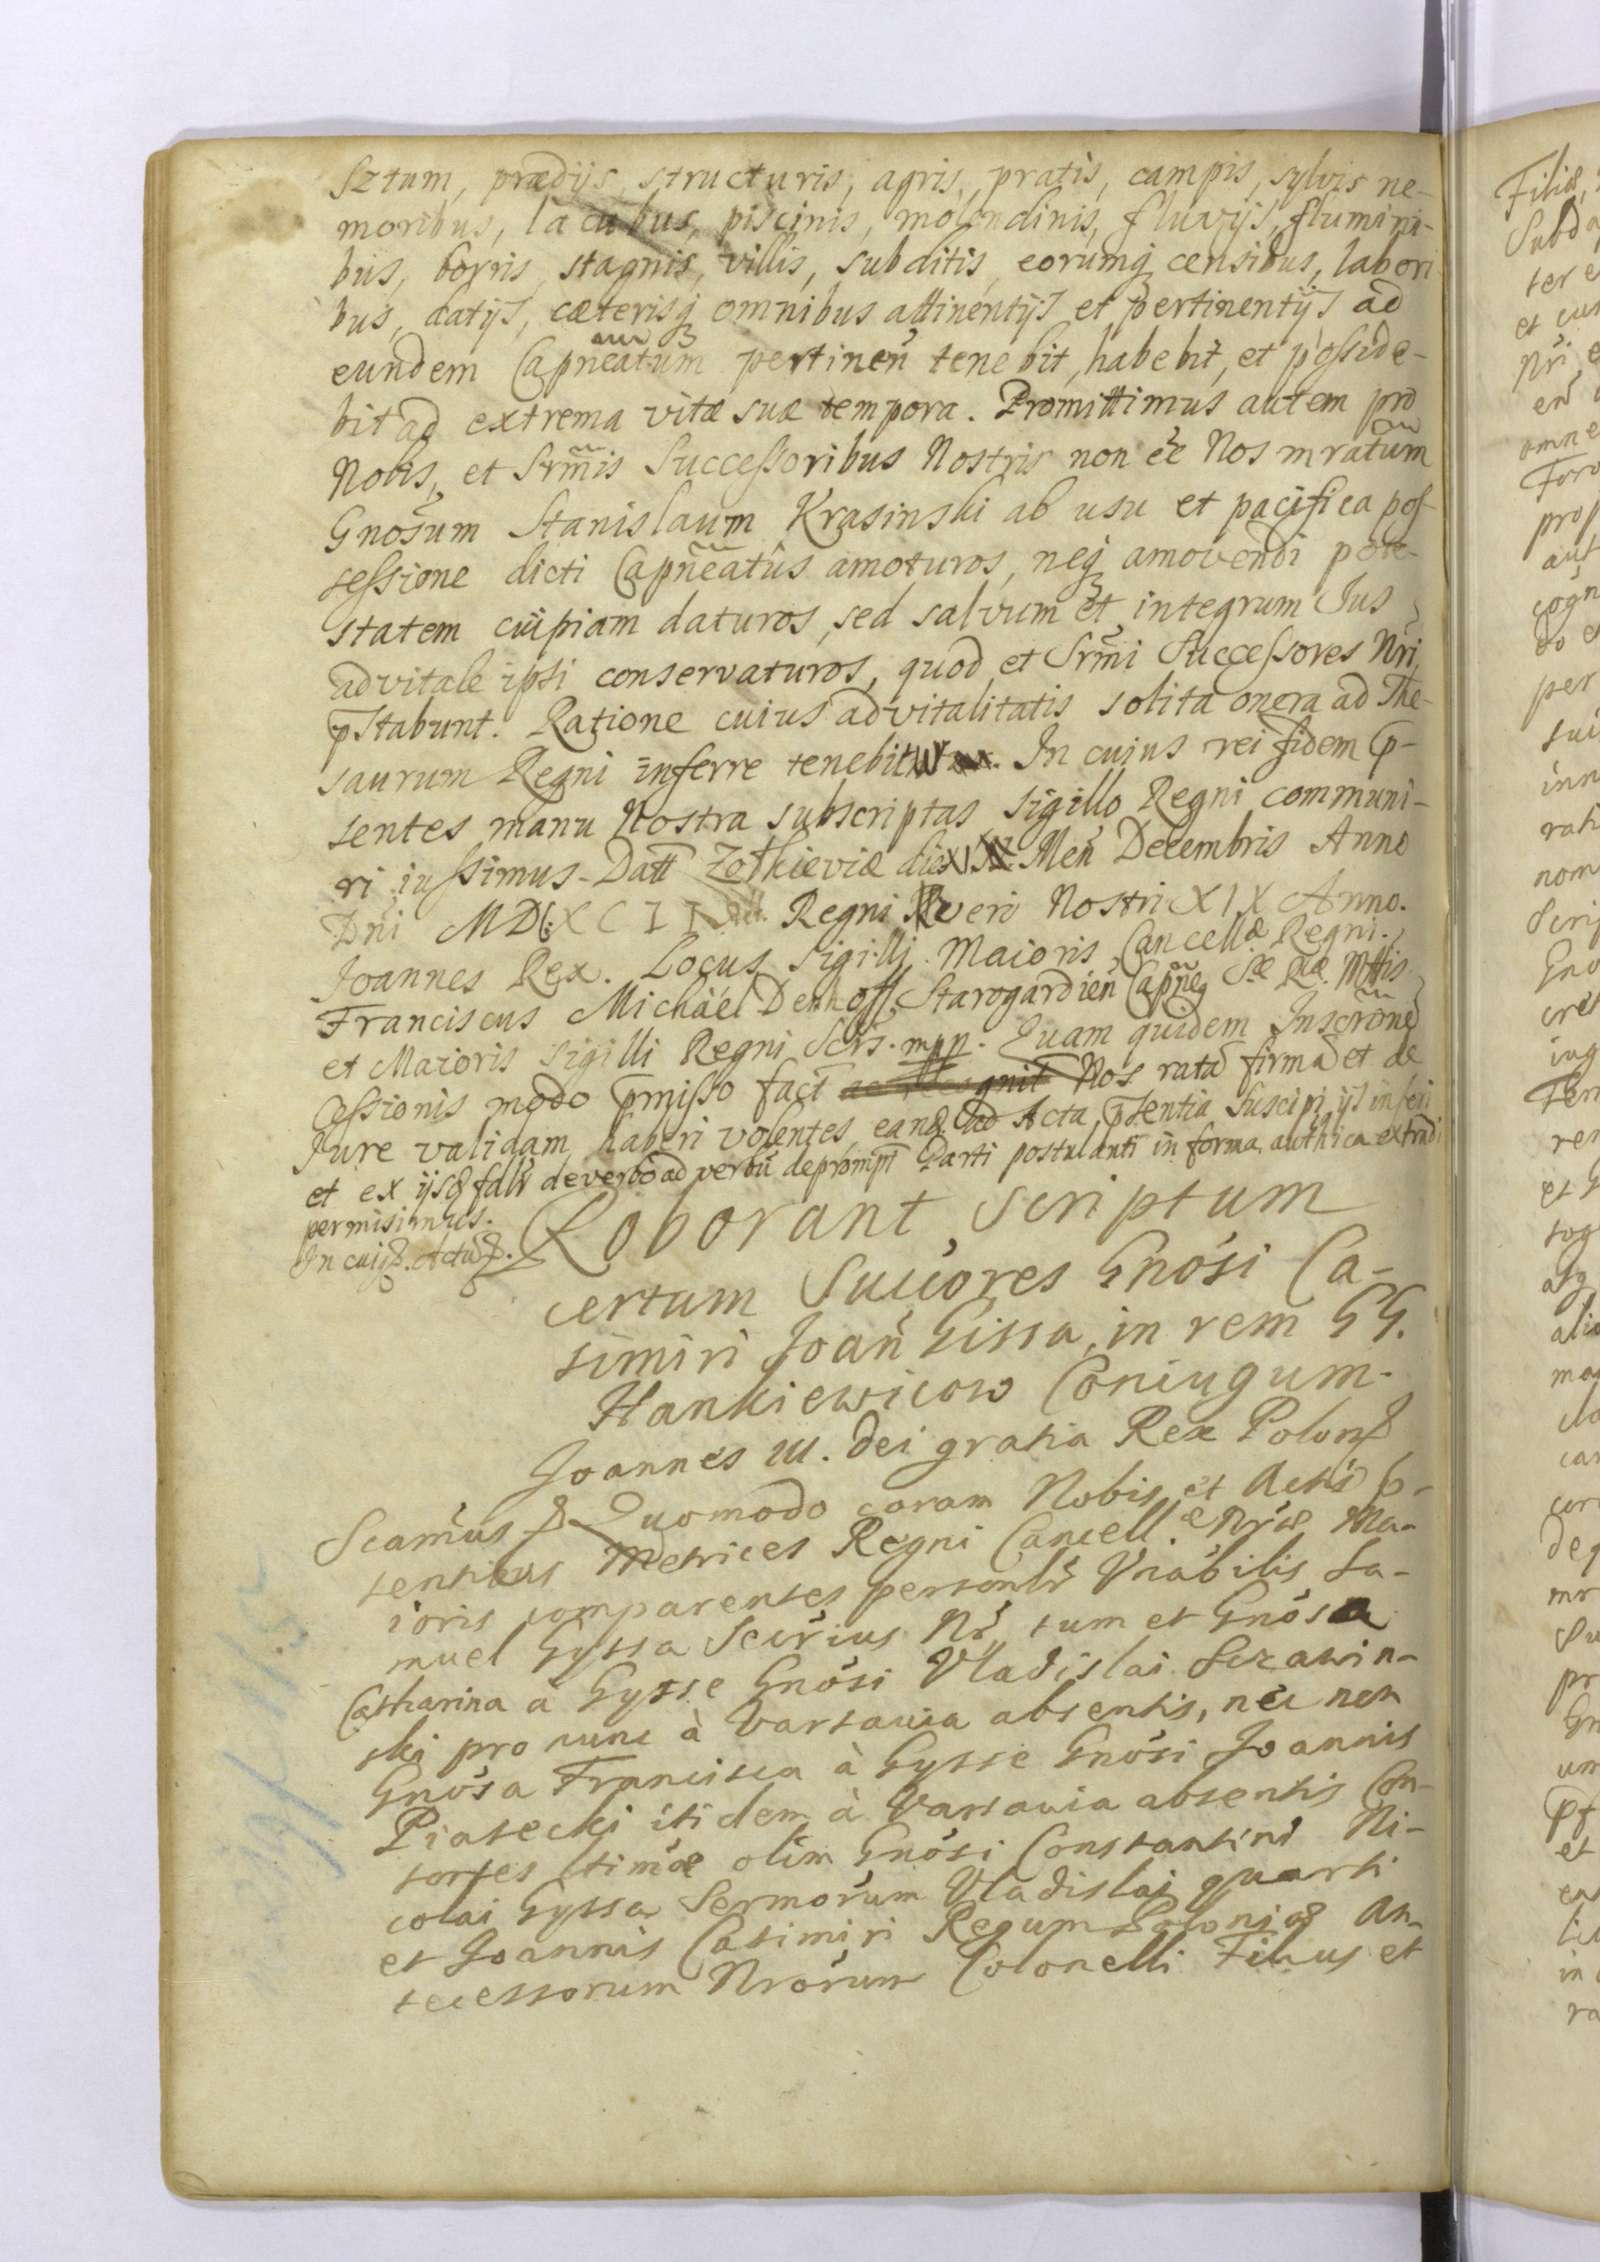 Sztum, prædijs, structuris, agris, pratis, campis, sylvis ne-
moribus, lacubus, piscinis, molondinis, fluvijs, flumini-
bus, borris, stagnis, villis, subditis, eorumq censibus, labori
bus, datijs, cæterisq omnibus attinentijs et pertinentijs ad
eundem Capneatum pertineñ tenebit, habebit, et posside-
bit ad extrema vitæ suæ tempora. Promittimus autem pro
Nobis, et Srm̃is Successoribus Nostris non ee Nos mratum
Gnosum Stanislaum Krasinski ab usu et pacifica pos-
sessione dicti Capñeatus amoturos, neq amovendi pote-
statem cuipiam daturos, sed salvum et integrum Jus
advitale ipsi conservaturos, quod et Srm̃i Successores Nri
pstabunt. Ratione cuius advitalitatis solita onera ad The-
saurum Regni inferre tenebitur. In cuius rei fidem p-
sentes manu Nostra subscriptas Sigillo Regni communi-
ri iussimus. Datt Zołkieviæ die Meñ Decembris Anno
Dni Regni veri Nostri XIX Anno.
Joannes Rex. Locus Sigilli Maioris Cancellæ Regni.
Franciscus Michäel Denhoff, Starogardień Capñe, Sæ Ræ Mttis
et Maioris Sigilli Regni Scrs. mpp. Quam quidem Inscrõne
Cessionis modo pmisso fact Nos rata firma et de
Jure validam haberi volentes, eand ad Acta psentia Suscipi ijs inseri
et ex ijsd fdlr deverbo ad verbu deprompt Parti postulanti in forma authica extradi
permisimus.
In cuig. Actu.
Roborant Scriptum
certum Succores Gnosi Ca-
simiri Joañ Gissa, in rem GG.
Hankiewicow Coniugum.
Joannes III. Dei gratia Rex Polon
Scamus Quomodo coram Nobis et Actis p-
sentibus Metrices Regni Cancell. æ Nræ Ma-
ioris comparentes personlr Vnabilis Sa-
muel Gyssa Secrius Nr, tum et Gnosa
Catharina à Gysse Gnosi Vladislai Szrawin-
ski pro nunc à Varsavia absentis, nec non
Gnosa Francisca à Gysse Gnosi Joannis
Piasecki itidem à Varsavia absentis Con-
sortes ltimæ olim Gnosi Constantini Ni-
colai Gyssa Sermorum Vladislai quarti
et Joannis Casimiri Regum Poloniæ An-
tecessorum Nrorum Colonelli Filius et